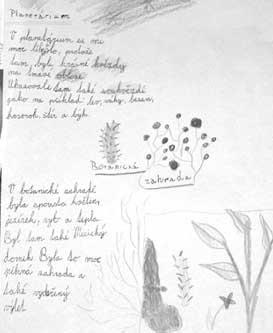 Planetárium
V planetárium se mi
moc líbylo, protože
tam byly krásné
na tmavé obloze.
Ukazovali tam také souhvězdí
jako na příklad lev, váhy, beran,
kozoroh, štír a býk.
Botanická
zahrada
V botanické zahradě
byla spousta květin,
jezírek, ryb a
Byl tam také
domek Byla to moc
pěkná zahrada a
také vydařený
výlet.